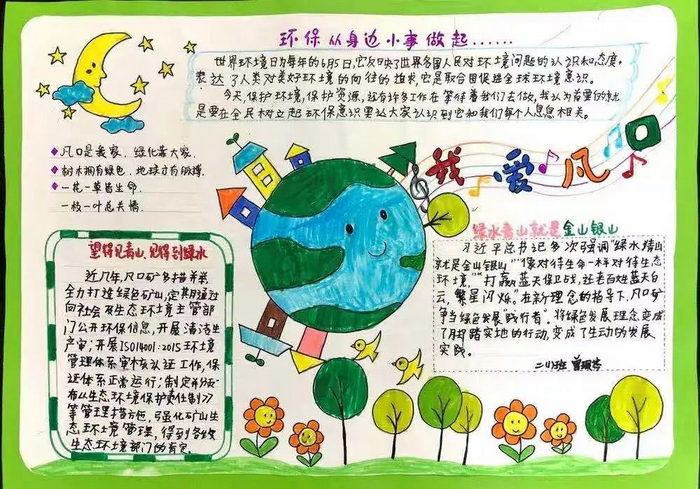 环保从身边小事做起……
世界环境日为每年的6月5日,它反映了世界各国人民对环境问题的认识和态度。
表达了人类对美好环境的向往的追求,它是联合国促进全球环境意识。
今天,保护环境,保护资源,还有许多工作在等待着我们去做,我认为首要的就
是要在全民树立起环保意识要让大家认识到它和我们每个人息息相关。
我爱凡口
凡口是我家,绿化靠大家.
树木拥有绿色,地球才有脉搏.
一花一草皆生命.
一枝一叶总关情.
望得见青山,见得到绿水
近几年,凡口矿多措并举,
全力打造绿色矿山,定期通过
向社会及生态环境主管部
门公开环保信息,开展清洁生
产审;开展ISO14001:2015环境
管理体系审核认证工作,保
证体系正常运行;制定并分
布从生态环境保护责任制
等管理措施,可显化矿山生
态环境管理,得到各级
生态环境部门的肯定.
绿水青山就是金山银山
习近平总书记多次强调“绿水青山
就是金山银山”“像对待生命一样对待生态
环境,”“打赢蓝天保卫战,还老百姓蓝天白
云,繁星闪烁。”在新理念的指导下,凡口矿
争当绿色发展“践行者”,将绿色发展理念变成
了脚踏实地的行动,变成了生动的发展
实践。